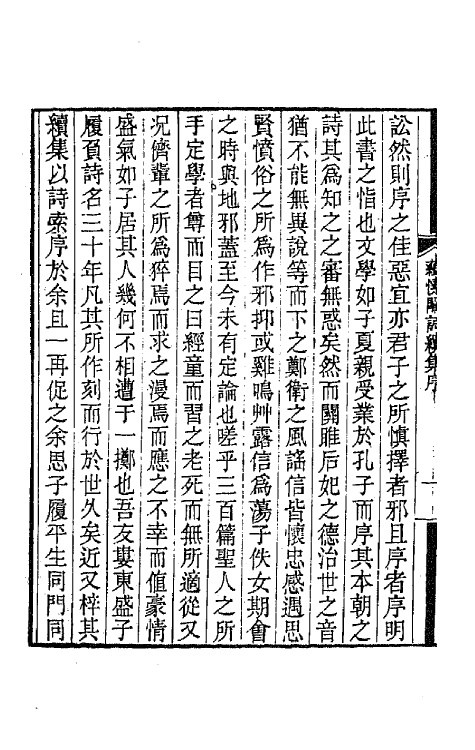 訟然則序之佳惡宜亦君子之所慎擇者邪且序者序明
此書之恉也文學如子夏親受業於孔子而序其本朝之
詩其為知之之審無惑矣然而關雎后妃之德治世之音
猶不能無異說等而下之鄭衛之風謠信皆懷忠感遇思
賢憤俗之所為作邪抑或雞鳴艸露信為蕩子佚女期會
之時與地邪蓋至今未有定論也嗟乎三百篇聖人之所
手定學者尊而目之曰經童而習之老死而無所適從又
況儕輩之所為猝焉而求之漫焉而應之不幸而值豪情
盛氣如子居其人幾何不相遭于一擲也吾友婁東盛子
履頁詩名三十年凡其所作刻而行於世久矣近又梓其
續集以詩索序於余且一再促之余思子履平生同門同
詩續集序